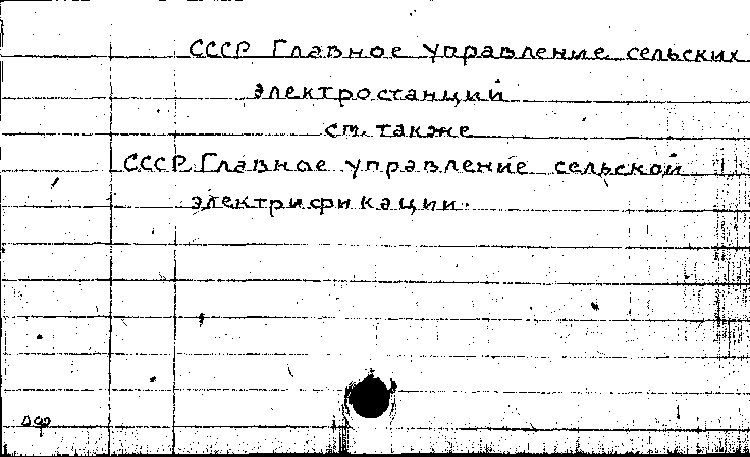 СССР Главное управление сельских
электростанций
см. также
СССР. Главное управление сельской
электрификации.